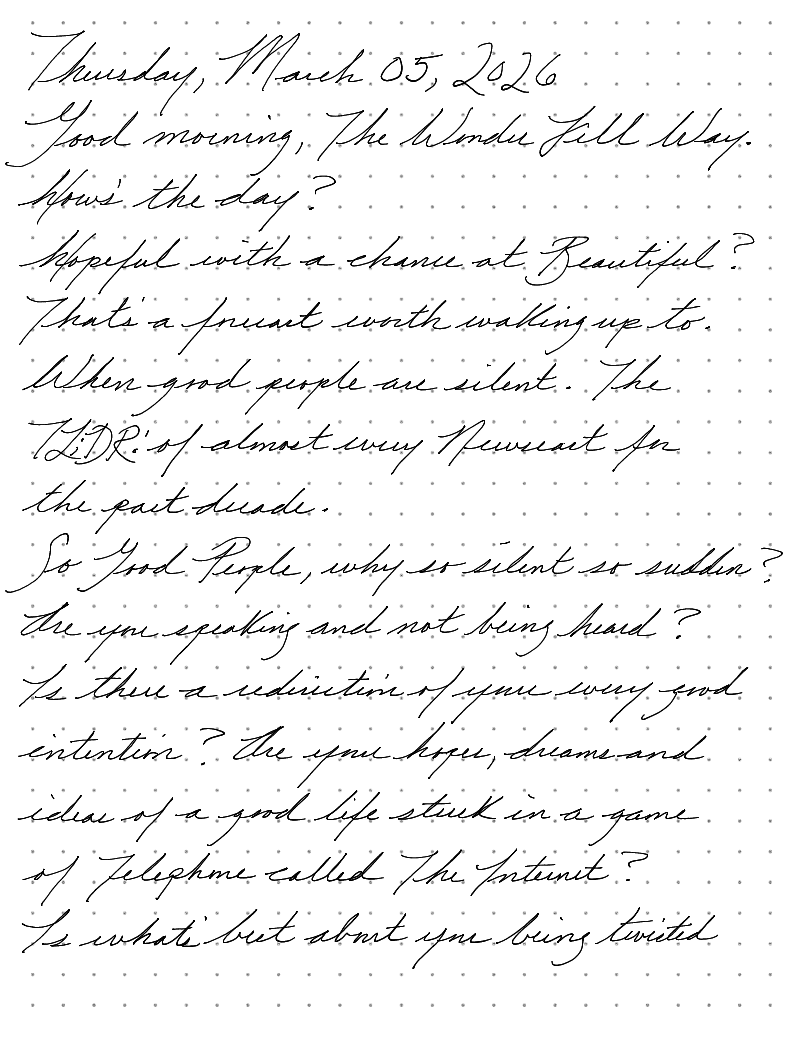 Thursday, March 05, 2026
Good morning, The Wonder Fill Way.
How's the day?
Hopeful with a chance at Beautiful?
That's a forecast worth waking up to.
When good people are silent. The
TL;DR: of almost every Newscast for
the past decade.
So Good People, why so silent so sudden?
Are you speaking and not being heard?
Is there a redirection of your every good
intention? Are your hopes, dreams and
ideas of a good life stuck in a game
of Telephone called The Internet?
Is what's best about you being twisted